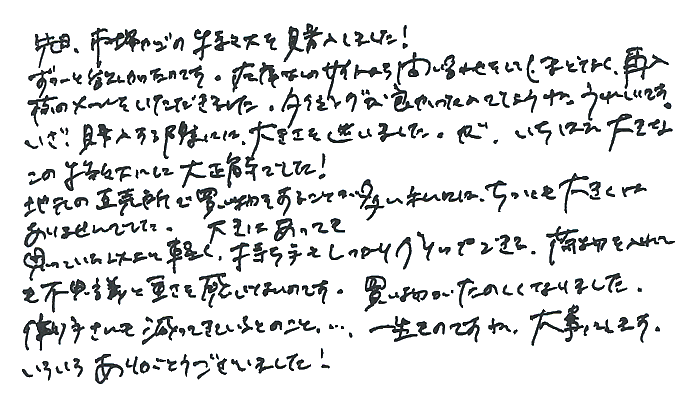 先日、市場かごの手提げ大を購入しました!
ずーっと欲しかったのです。在庫なしのサイトから問い合わせをして、ほどなく、再入
荷のメールをいただきました。タイミングが良かったんでしょうね。うれしいです。
いざ!購入する際には、大きさを迷いました。が、いちばん大きな
この手提げ大にして大正解でした!
地元の直売所で買い物をすることが多い私には、ちっとも大きくは
ありませんでした。 大きさにあっても
思っていた以上に軽く、持ち手もしっかりしていてできる、荷物を入れて
も不思議と重さを感じないのです。買い物がたのしくなりました。
作り手さんも減ってきているとのこと、…、一生ものですね、大事にします。
いろいろありがとうございました!